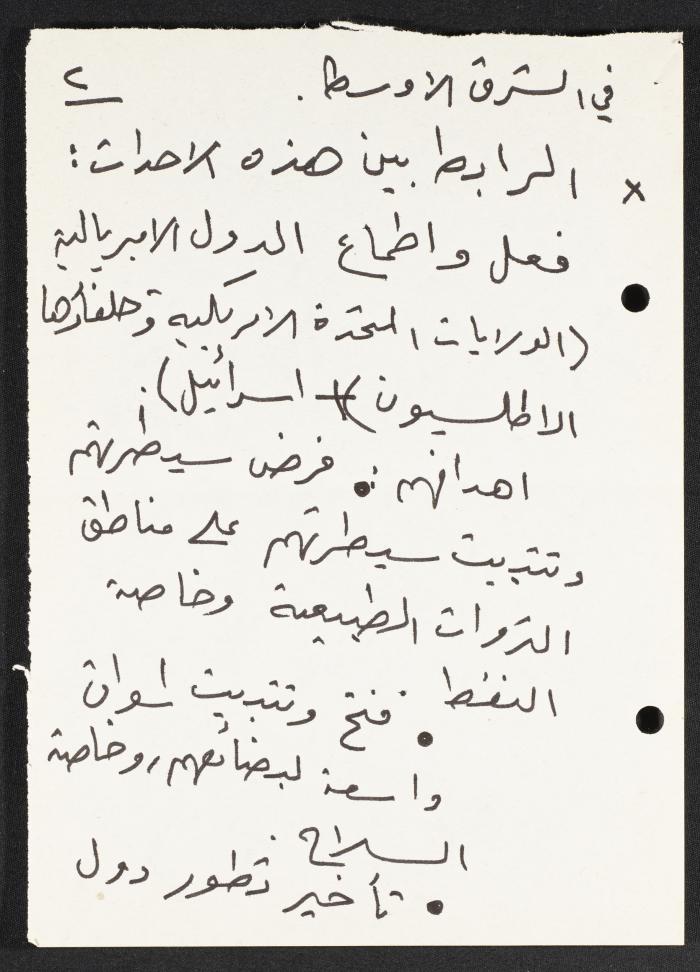 ٢
في الشرق الاوسط.
x الرابط بين هذه الاحداث:
فعل واطماع الدول الامبريالية
(الولايات المتحدة الامريكية وحلفاؤها
الاطلسيون) + اسرائيل).
اهدافهم: • فرض سيطرتهم
وتثبيت سيطرتهم على مناطق
الثروات الطبيعية وخاصة
النفط.
• فتح وتثبيت اسواق
واسعة لبضائعهم, وخاصة
السلاح.
• تأخير تطور دول